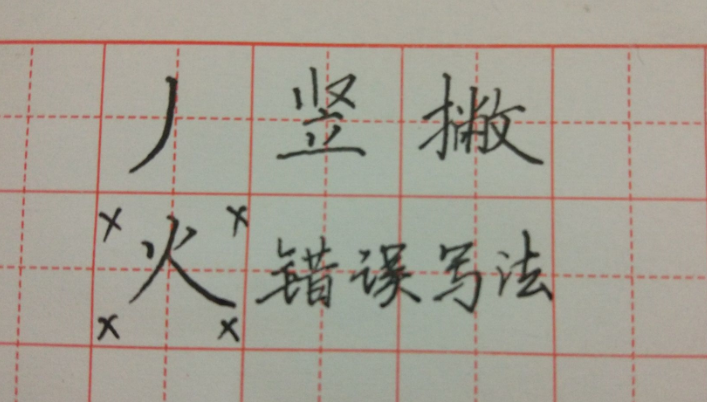 丿 竖撇
× × 火 × × 错误写法